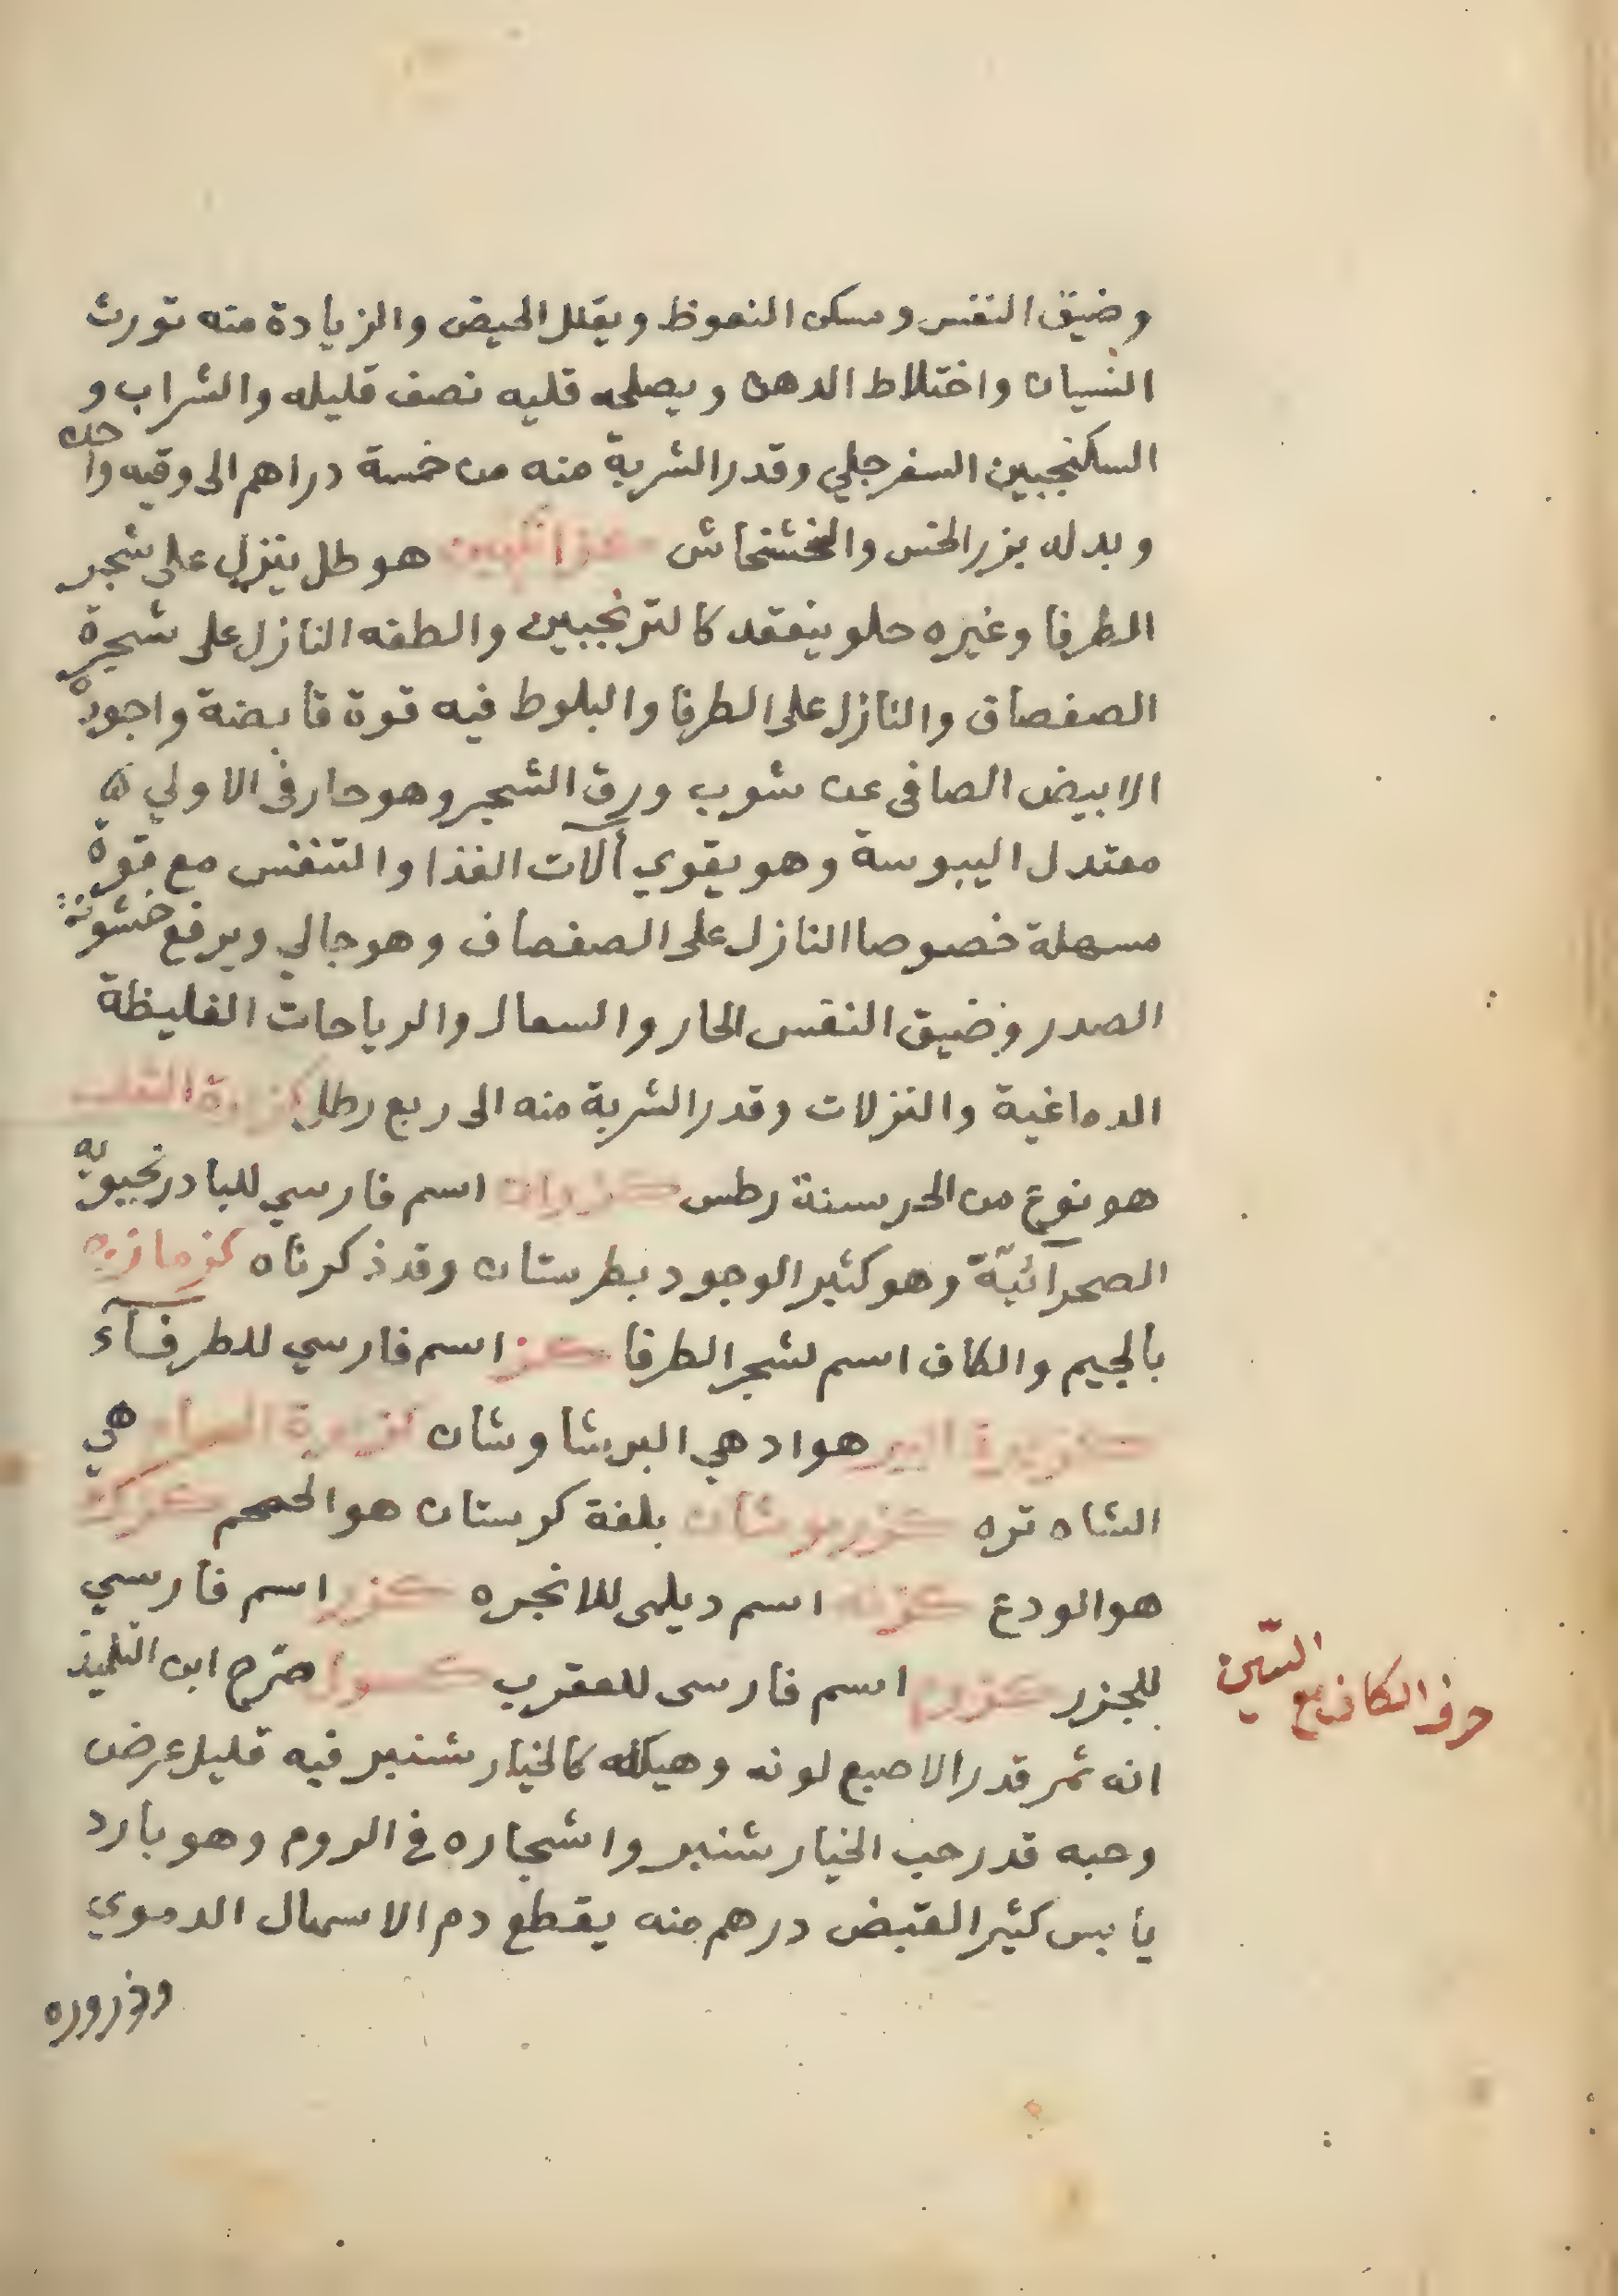 وضيق النفس ومسكن النعوظ ويقلل الحيض والزيادة منه تورث
النسيان واختلاط الدهن ويصلحه قليه نصف قليله والشراب و
السكنجبين السفرجلي وقدر الشربة منه من خمسة دراهم الى وقيه واحده
وبدله بزر الخس والخشخاش كزانكبين هو طل ينزل على شجر
الطرفا وغيره حلو ينعقد كالترنجبين والطفه النازل على شجرة
الصفصاف والنازل على الطرفا والبلوط فيه قوة قابضة واجوده
الابيض الصافى عن شوب ورق الشجر وهو حار فى الاولي ه
معتدل اليبوسة وهو يقوي آلات الغذا والتنفس مع قوة
مسهلة خصوصا النازل على الصفصاف وهو جالي ويرفع خشونة
الصدر وضيق النفس الحار والسعال والرياحات الغليظة
الدماغية والنزلات وقدر الشربة منه الى ربع رطل كزبرة الثعلب
هو نوع من الحرسنة رطس كزوان اسم فارسي للبادرنجبويه
الصحرآئيّة وهو كثير الوجود بطرستان وقد ذكرناه كزمازه
بالجيم والكاف اسم لشجر الطرفا كز اسم فارسي للطرفآء
كزبرة البير هواد هي البرشاوشان كزبرة الحمام هي
الشاه تره كزربوشان بلغة كرستان هو الحمحم كزكر
هو الودع كزنه اسم ديلمى للانجره كزر اسم فارسي
للجزر كزدم اسم فارسى للعقرب كسوا صرّح ابن التلميذ
حرف الكاف مع السّين
انه ثمر قدر الاصبع لونه وهيكله كالخيار شنبر فيه قليل عرض
وحبه قدر حب الخيار شنبر واشجاره في الروم وهو بارد
يابس كثير القبض درهم منه يقطع دم الاسهال الدموي
وذروره